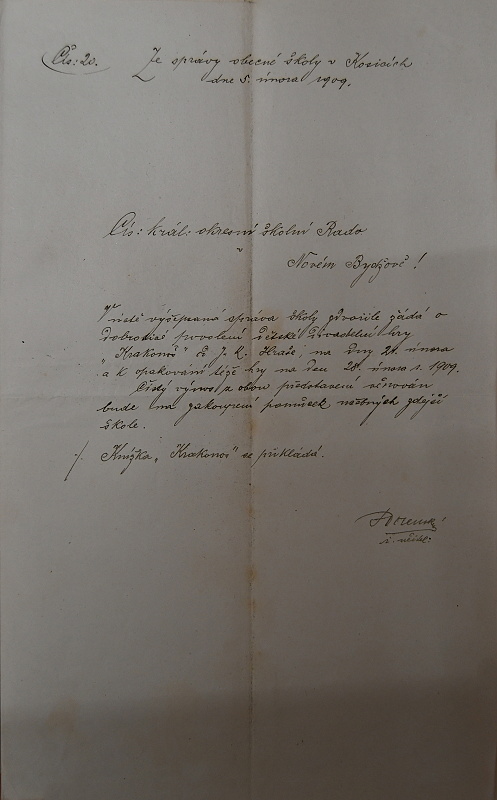 Čís: 20. Ze správy obecné školy v Kosicích
dne 5. února 1909.
Cís: král: okresní školní Rado
v
Novém Bydžově!
V úctě výšepsaná správa školy zdvořile žádá o
dobrotivé povolení dětské divadelní hry
„Krakonoš" od J. K. Hraše, na dny 21. února
a k opakování téže hry na den 28. února r. 1909.
Čistý výnos z obou představení věnován
bude na zakoupení pomůcek učebných zdejší
škole.
/. Knížka „Krakonoš" se přikládá.
ř. učitel: